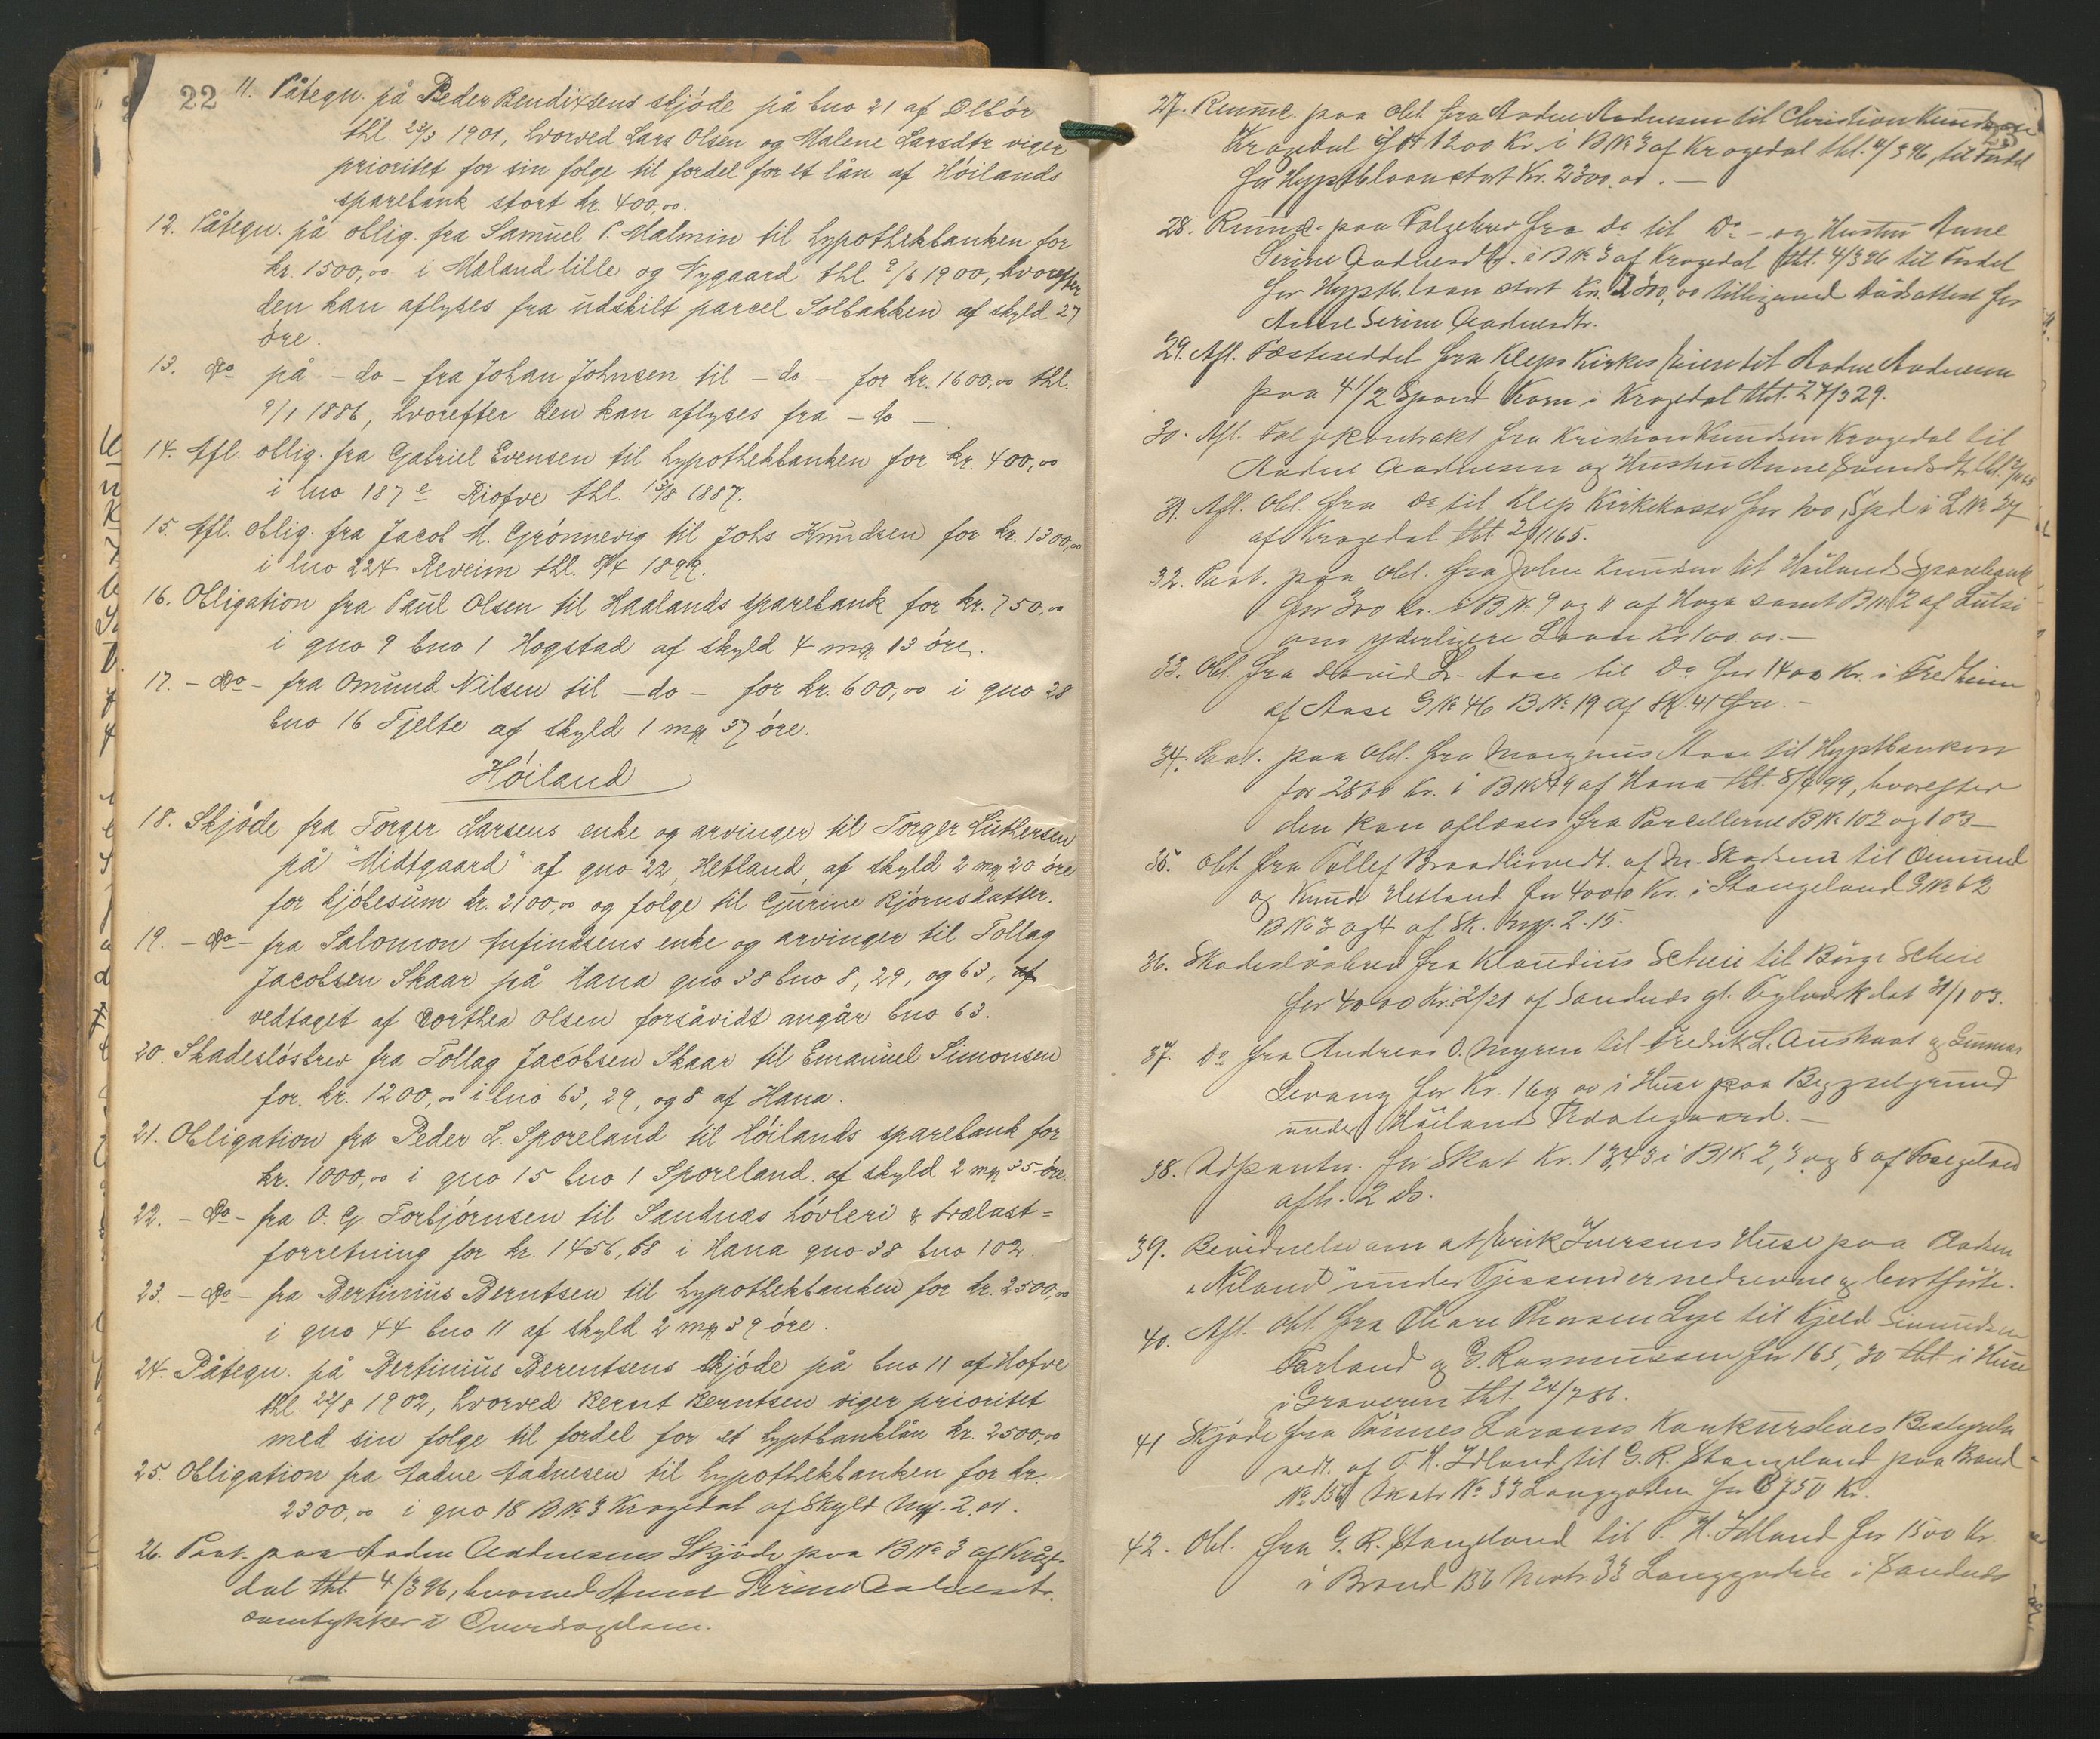 22
11. Påtegn. på Peder Bendixsens skjöde på bno 21 af Ølbör
thl. 23/3 1901, hvorved Lars Olsen og Malene Larsdtr viger
prioritet for sin folge til fordel for et lån af Höilands
sparebank stort kr. 400,00.
12. Påtegn. på oblig. fra Samuel P. Malmin til hypothekbanken for
kr. 1500,00 i Mæland lille og Nygaard thl. 9/6 1900, hvorefter
den kan aflyses fra udskilt parcel Solbakken af skyld 27
öre.
13. Do på - do - fra Johan Johnsen til - do - for kr. 1600,00 thl.
9/1 1886, hvorefter den kan aflyses fra - do -
14. Afl. oblig. fra Gabriel Evensen til hypothekbanken for kr. 400,00
i lno 187e Riofve thl. 13/8 1887.
15. Afl. oblig. fra Jacob M. Grönnevig til Johs Knudsen for kr. 1300,00
i lno 224 Reveim thl. 8/4 1899.
16. Obligation fra Paul Olsen til Haalands sparebank for kr. 750,00
i gno 9 bno 1 Hogstad af skyld 4 mrk 13 öre.
17. - Do - fra Omund Nilsen til - do - for kr. 600,00 i gno 28
bno 16 Tjelte af skyld 1 mrk 37 öre.
Höiland
18. Skjöde fra Torger Larsens enke og arvinger til Torger Luthersen
på "Midtgaard" af gno 22, Hetland, af skyld 2 mrk 20 öre
for kjöbesum kr. 2100,00 og folge til Gurine Bjórnsdatter.
19. - Do - fra Salomon Anfindsens enke og arvinger til Tollag
Jacobsen Skaar på Hana gno 38 bno 8, 29, og 63, af
vedtaget af Dorthea Olsen forsåvidt angår bno 63.
20. Skadeslösbrev fra Tollag Jacobsen Skaar til Emanuel Simonsen
for kr. 1200,00 i bno 63, 29, og 8 af Hana.
21. Obligation fra Peder L. Sporeland til Höilands sparebank for
kr. 1000,00 i gno 15 bno 1 Sporeland af skyld 2 mrk 35 öre.
22. - Do - fra O. G. Torbjörnsen til Sandnæs hövleri & trælast=
forretning for kr. 1456,68 i Hana gno 38 bno 102.
23. - Do - fra Bertinius Berntsen til hypothekbanken for kr. 2500,00
i gno 44 bno 11 af skyld 2 mrk 39 öre.
24. Påtegn. på Bertinius Berentsens skjöde på bno 11 af Hofve
thl. 22/8 1902, hvorved Bernt Berntsen viger prioritet
med sin folge til fordel for et hyptbanklån kr. 2500,00
25. Obligation fra Aadne Aadnesen til hypothekbanken for kr.
2300,00 i gno 18 B No 3 Kragedal af Skyld Mrk. 2.01.
26. Paat. paa Aadne Aadnesens Skjöde paa B No 3 af Kråge-
dal thl 4/3 96, hvorved Anne Serine Aadnesdtr.
samtykker i Overdragelsen.
27. Rumme. paa Obl. fra Aadne Aadnesen til Christian Knudsen
Kragedal for 1200 Kr. i B No 3 af Kragedal thl. 4/3 96, til Fordel
for Hypthlaan stort Kr. 2300.00. -
28. Rumme. paa Folgebrev fra do til Do - og Hustru Anne
Serine Aadnesdtr. i B No 3 af Kragedal thl. 4/3 96 til Fordel
for Hypth. laan stort Kr. 2300,00 tilligemed Dödsattest for
Anne Serine Aadnesdtr.
29. Afl. Fæsteseddel fra Kleps Kirkes Eiere til Aadne Aadnesen
paa 4 1/2 Spand Korn i Kragedal thl. 27/3 29.
30. Afl. Folgekontrakt fra Kristian Knudsen Kragedal til
Aadne Aadnesen og Hustru Anne Svendsdtr thl.
31. Afl. Obl. fra Do til Klep Kirkekasse for 200 Spd i L No 27
af Kragedal thl. 2/11 65.
32. Paat. paa Obl. fra John Knudsen til Höilands Sparebank
for 300 Kr. i B No 9 og 11 af Hoga samt B No 2 af Lutsi
om yderligere Laan Kr 100.00. -
33. Obl. fra David L. Aase til Do for 1400 Kr. i Fredheim
af Aase G No 46 B No 19 af Sk. 41 Öre. -
34. Paat. paa Obl. fra Magnus Aase til Hyptbanken
for 2800 Kr. i B No 49 af Hana thl. 8/4 99, hvorefter
den kan aflæses fra Parcellerne B No 102 og 103 -
35. Obl. fra Tollef Braadlivedt. af til Omund
og Knud Hetland for 4000 Kr. i Stangeland G No 62
B No 3 og 4 af Sk. Mrk. 2.15.
36. Skadeslösbrev fra Klaudius Scheie til Börge Scheie
for 4000 Kr. i 2/21 af Sandnds gl. Teglværk dat 31/1 03.
37. Do fra Andreas O. Myren til Fredrik L. Austvoat og Gunnar
Levang for Kr. 169 00 i Huse paa Byggselgrund
under Höiland Prastegaard. -
38. Udpantn. for Skat Kr. 13,43 i B No 2, 3 og 8 af
afh. 2 ds.
39. Bevidnelse om at Erik Iversens Huse paa Pladsen
"Niland" under Gjessend er nedrevne og bortförte.
40. Afl. Obl. fra Thore Thorsen Lye til Kjeld Simundsen
Tarland og G. Rasmussen for 165,30 thl i Huse
i Graveren thl. 24/7 86.
41 Skjöde fra Tönnes Larsens Konkursboes Bestyrelse
ved. af T. H. Idland til G. R. Stangeland paa Brand
No 156 Matr No 33 Langgaden for 8750 Kr.
42. Obl. fra G. R. Stangeland til T. H. Idland for 1500 Kr
i Brand 156 Matr. 33 Langgaden i Sandnds